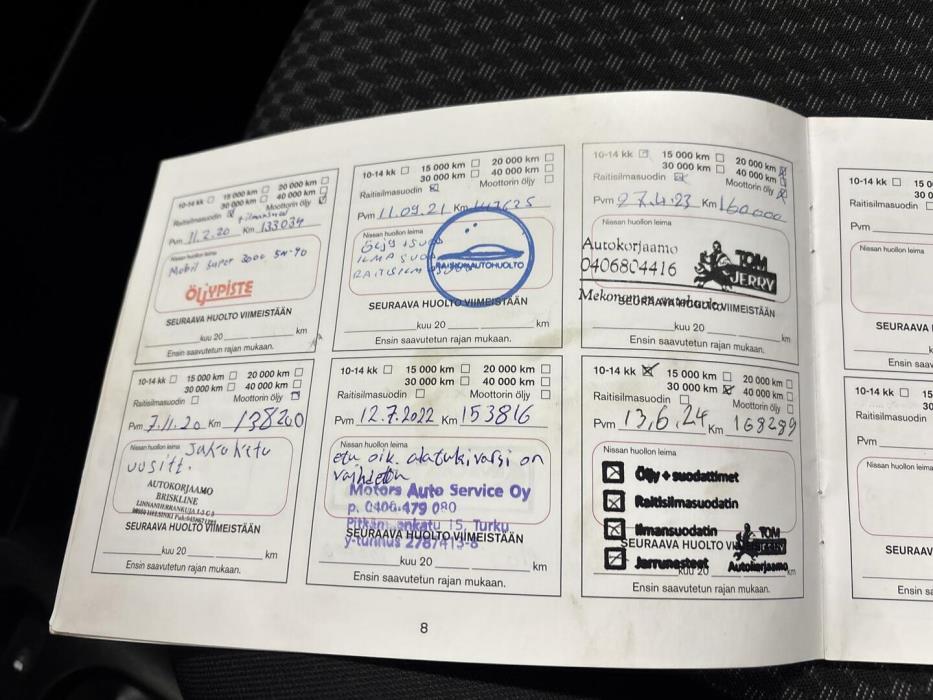 10-14 kk 15 000 km 20 000 km
30 000 km 40 000 km
Raitisilmasuodin Moottorin öljy
Pvm 11.2.20 Km 133034
Nissan huollon leima
Mobil Super 3000 5W-40
ÖLJYPISTE
SEURAAVA HUOLTO VIIMEISTÄÄN
kuu 20 km
Ensin saavutetun rajan mukaan.
10-14 kk 15 000 km 20 000 km
30 000 km 40 000 km
Raitisilmasuodin Moottorin öljy
Pvm 11.09.21 Km
Nissan huollon leima
ÖLJY + SUOD
ILMA SUOD
AUTOHUOLTO
SEURAAVA HUOLTO VIIMEISTÄÄN
kuu 20 km
Ensin saavutetun rajan mukaan.
10-14 kk 15 000 km 20 000 km
30 000 km 40 000 km
Raitisilmasuodin Moottorin öljy
Pvm 27.4.23 Km 160000
Nissan huollon leima
Autokorjaamo
0406804416
TOM
JERRY
SEURAAVA HUOLTO VIIMEISTÄÄN
kuu 20 km
Ensin saavutetun rajan mukaan.
10-14 kk 15 000 km 20 000 km
30 000 km 40 000 km
Raitisilmasuodin Moottorin öljy
Pvm 7.11.20 Km 138200
Nissan huollon leima Jakoketju
uusitt.
AUTOKORJAAMO
BRISKLINE
SEURAAVA HUOLTO VIIMEISTÄÄN
kuu 20 km
Ensin saavutetun rajan mukaan.
10-14 kk 15 000 km 20 000 km
30 000 km 40 000 km
Raitisilmasuodin Moottorin öljy
Pvm 12.7.2022 Km 153816
Nissan huollon leima
etu oik. alatukivarsi on
vaihdettu
Motors Auto Service Oy
p. 0400 479 080
Turku
SEURAAVA HUOLTO VIIMEISTÄÄN
kuu 20 km
Ensin saavutetun rajan mukaan.
10-14 kk 15 000 km 20 000 km
30 000 km 40 000 km
Raitisilmasuodin Moottorin öljy
Pvm 13.6.24 Km 168299
Nissan huollon leima
Öljy + suodattimet
Raitisilmasuodatin
Ilmansuodatin
SEURAAVA HUOLTO
TOM
Jarrunesteet
Autokorjaamo
kuu 20 km
Ensin saavutetun rajan mukaan.
8
10-14 kk
Raitisilmasuodin
Pvm
Nissan huollon
SEURAAVA
Ensin
10-14 kk
Raitisilmasuodin
Pvm
Nissan huollon